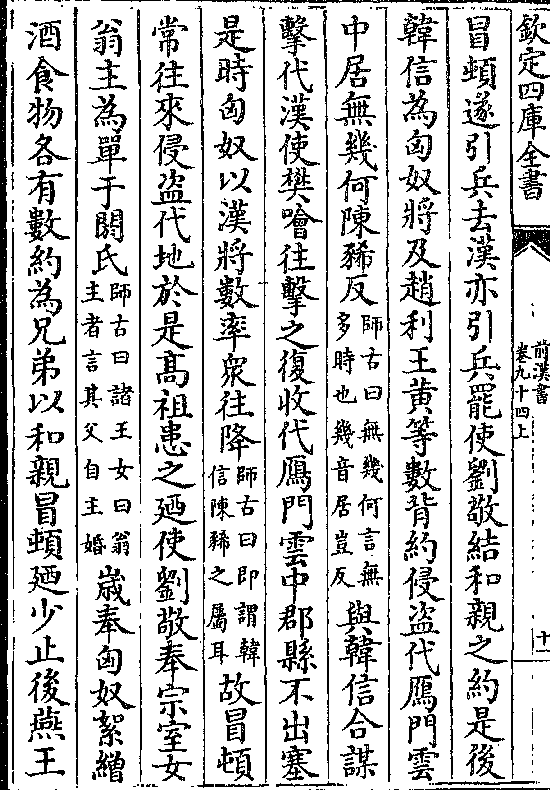 欽定四庫全書
前漢書
卷九十四上
十一
冒頓遂引兵去漢亦引兵罷使劉敬結和親之約是後
韓信為匈奴將及趙利王黃等數背約侵盜代鴈門雲
中居無幾何陳豨反師古曰無幾何言無多時也幾音居豈反與韓信合謀
擊代漢使樊噲往擊之復收代鴈門雲中郡縣不出塞
是時匈奴以漢將數率衆往降師古曰即謂韓信陳豨之屬耳故冒頓
常往來侵盜代地於是髙祖患之廼使劉敬奉宗室女
翁主為單于閼氏師古曰諸王女曰翁主者言其父自主婚歲奉匈奴絮繒
酒食物各有數約為兄弟以和親冒頓廼少止後燕王